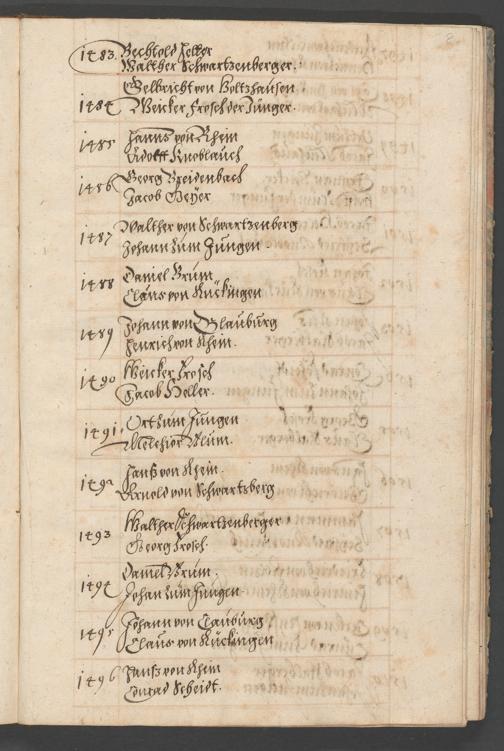 1483. Bechtold Heller
Walther Schwartzenberger.
Gelbricht von Holtzhausen
1484 Weicker frosch der Jünger.
1485 Hanns von Rhein
Adolff Knoblauch
1486 Georg Breidenbach
Jacob Geÿer
1487 Walther von Schwartzenberg
Johann zum Jungen
1488 Daniel Brum
Claus von Rückingen
1489 Johann von Glauburg
Henrich von Rhein.
1490 Weicker Frosch
Jacob Heller.
1491. Ort zum Jungen
Melchior Blum.
1492 Hanß von Rhein.
Arnold von Schwartzberg
1493 Walther Schwartzenberger
Georg Frosch.
1494 Daniel Brum.
Johan zum Jungen
1495 Johann von Glauburg
Claus von Rückingen
1496 Hanß von Rhein
Conrad Scheidt.